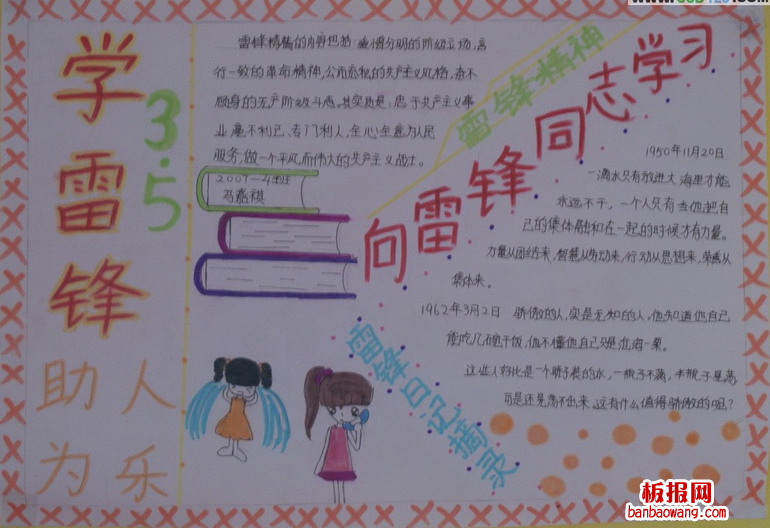 学
雷
锋
3.5
助人
为乐
雷锋精神的内容包括:爱憎分明的阶级立场,言
行一致的革命精神,公而忘私的共产主义风格,奋不
顾身的无产阶级斗志。其实质是:忠于共产主义事
业,毫不利己、专门利人,全心全意为人民
服务,做一个平凡而伟大的共产主义战士。
2009—4班
雷锋精神
向雷锋同志学习
1950年11月20日
一滴水只有放进大海里才能
永远不干,一个人只有当他把自
己的集体融和在一起的时候才有力量。
力量从团结来,智慧从劳动来,行动从思想来,荣誉从
集体来。
1962年3月2日 骄傲的人,实是无知的人,他知道他自己
能吃几碗干饭,他不懂他自己只是沧海一粟。
这些人好比是一个瓶子装的水,一瓶子不满,半瓶子晃荡,
可是还晃荡不出来,这有什么值得骄傲的呢?
雷锋日记摘录
板报网
banbaowang.com